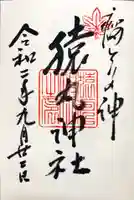 癌とりの神
猿丸神社
令和二年九月廿二日